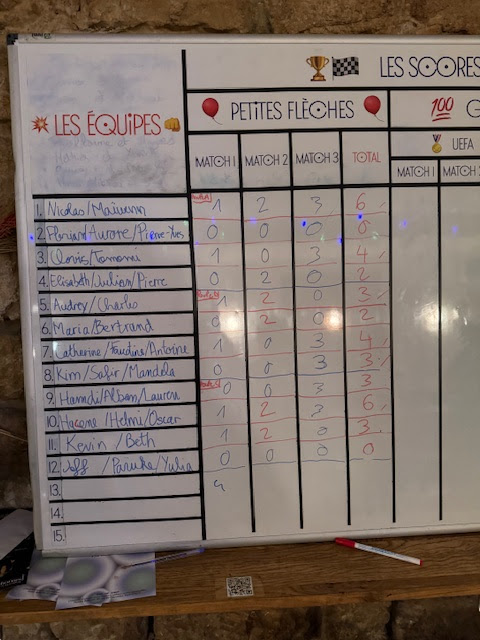 LES SCORES
PETITES FLÈCHES 100 G
LES ÉQUIPES UEFA
MATCH 1 MATCH 2 MATCH 3 TOTAL MATCH 1 MATCH 2
1. Nicolas/Maiwenn 1 2 3 6
2. Florian/Aurore/Pierre-Yves 0 0 0 0
3. Clovis/Tomomi 1 0 3 4
4. Elisabeth/Julian/Pierre 0 2 0 2
5. Audrey/Charles 1 2 0 3
6. Mario/Bertrand 0 2 0 2
7. Catherine/Faustine/Antoine 1 0 3 4
8. Kim/Safir/Mandola 0 0 3 3
9. Hamdi/Alban/Laurou 0 0 3 3
10. Hacene/Helmi/Oscar 1 2 3 6
11. Kevin/Beth 1 2 0 3
12. Jeff / /Yulia 0 0 0 0
13.
14.
15.